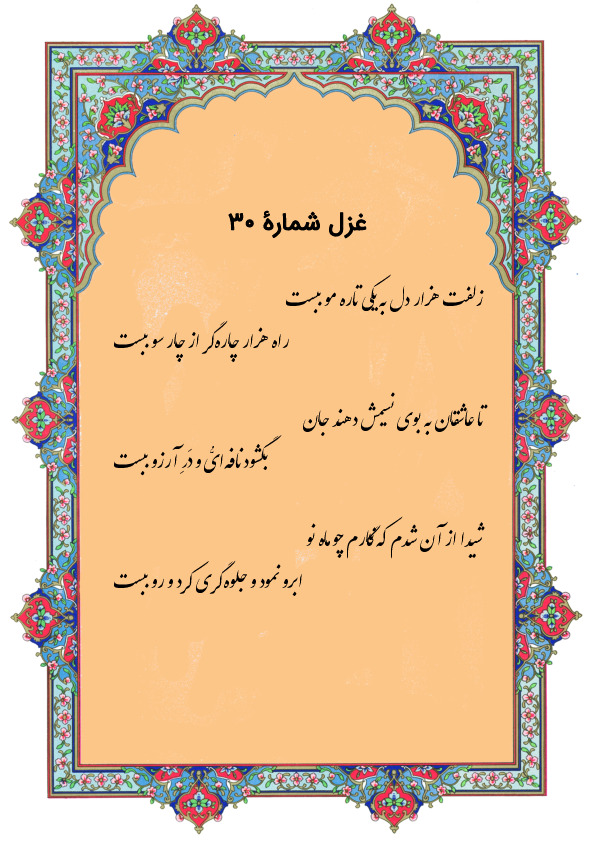 غزل شمارهٔ ۳۰
زلفت هزار دل به یکی تاره مو ببست
راه هزار چاره‌گر از چار سو ببست
تا عاشقان به بوی نسیمش دهند جان
بگشود نافه‌ای و دَرِ آرزو ببست
شیدا از آن شدم که نگارم چو ماه نو
ابرو نمود و جلوه‌گری کرد و رو ببست